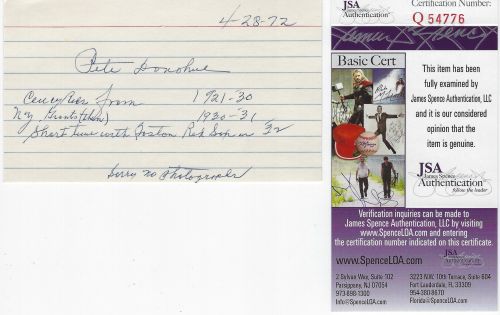 4-28-72
Pete Donohue
from 1921-30
N.Y. Giants 1930-31
Short time with Boston Red Sox in 32
Sorry no photographs
JSA
Authentication
Certification Number:
Q 54776
Basic Cert
This item has been
fully examined by
James Spence Authentication, LLC
and it is our considered
opinion that the
item is genuine.
JSA
James Spence
Authentication
follow the leader
Verification inquiries can be made to
James Spence Authentication, LLC by visiting
www.SpenceLOA.com and entering
the certification number indicated on this certificate.
www.SpenceLOA.com
JSA
Authentication
2 Sylvan Way, Suite 102
Parsippany, NJ 07054
973-898-1300
Info@SpenceLOA.com
3223 N.W. 10th Terrace, Suite 604
Fort Lauderdale, FL 33309
954-380-8670
Florida@SpenceLOA.com